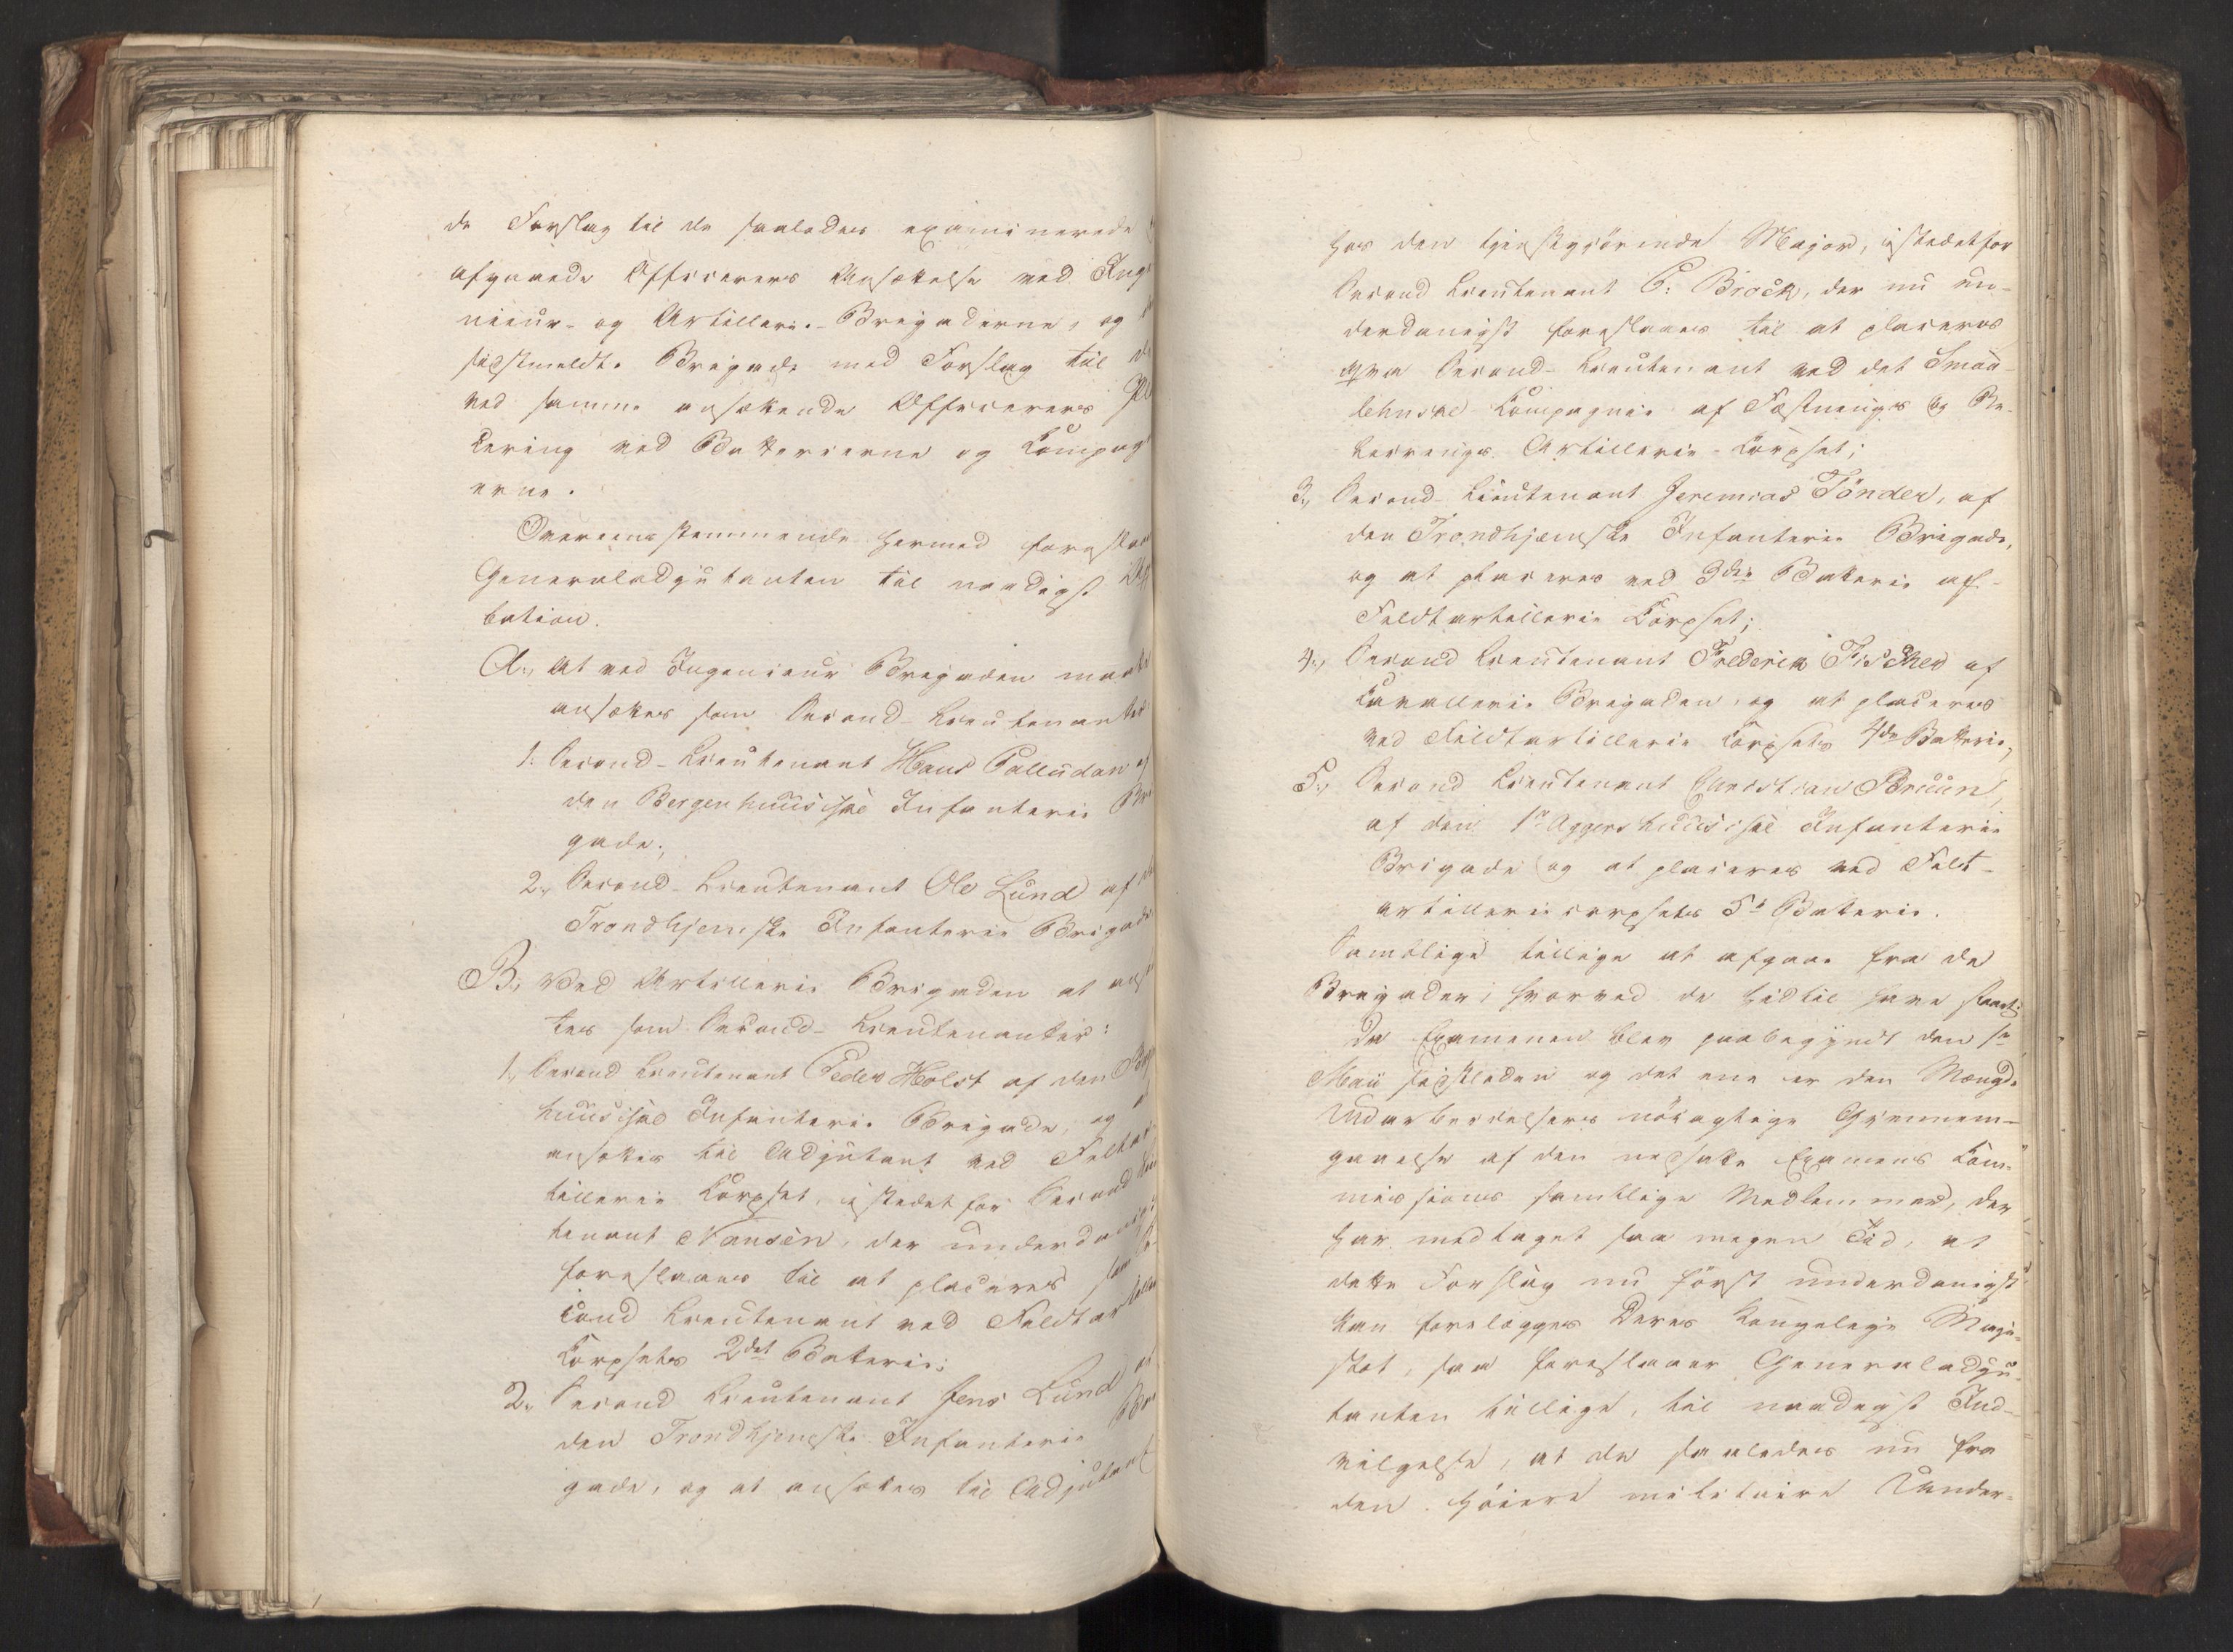 de Forslag til de saaledes examinerede
afgaaede Officerers Ansættelse ved Inge
nieur- og Artillerie-Brigaderne, og
sidstmeldte Brigade med Forslag til de
ved samme ansættende Officerers Pla
cering ved Batterierne og Kompag
nerne.
Overeensstemmende hermed foreslaa
Generaladjutanten til naadigst App
bation.
A., At ved Ingenieur Brigaden maatte
ansættes som Second-Lieutenanter
1. Second-Lieutenant Hans Palludan af
den Bergenhuusiske Infanterie Bri
gade;
2., Second-Lieutenant Ole Lund af
Trondhjemske Infanterie Brigade
B., Ved Artillerie Brigaden at ansæt
tes som Second-Lieutenanter:
1., Second Lieutenant Peder Holst af den Berg
huusiske Infanterie Brigade, og
ansættes til Adjutant ved Feltar
tillerie Corpset, istedetfor Second Lieu
tenant Nansen, der underdanigst
foreslaaes til at placeres som
cond Lieutenant ved Feldtartillerie
Corpsets 2det Batterie;
2., Second Lieutenant Jens Lund af
den Trondhjemske Infanterie Bri
gade, og at ansættes til Adjutant
hos den tjenstgjörende Major, istedetfor
Second Lieutenant P. Brock, der nu un-
derdanigst foreslaaes til at placeres
qva Second-Lieutenant ved det Smaa-
lehnske Kompagnie af Fæstnings og Re-
serverings Artillerie-Corpset;
3., Second-Lieutenant Jeremias Tönder, af
den Trondhjemske Infanterie Brigade,
og at placeres ved 3die Batterie af
Feldtartillerie Corpset;
4., Second Lieutenant Frederik Fischer af
Cavallerie Brigaden, og at placeres
ved Feldtartillerie Corpsets 4de Batterie,
5., Second Lieutenant Christian Bruun,
af den 1e Aggershuusiske Infanterie
Brigade og at placeres ved Felt-
artilleriecorpsets 5te Batterie.
Samtlige tillige at afgaae fra de
Brigader, hvorved de hidtil have staaet;
Da Examenen blev paabegyndt den 1e
Maii sidstleden og det ene er den Mængde
Udarbeidelsers nöiagtige Gjennem-
gaaelse af den nedsatte Examens Com-
missions samtlige Medlemmer, der
har medtaget saa megen Tid, at
dette Forslag nu först underdanigst
kan forelægges Deres Kongelige Maje-
stæt, saa foreslaaer Generaladju-
tanten tillige, til naadigst Ind-
vilgelse, at de saaledes nu fra
den höiere militaire Under-